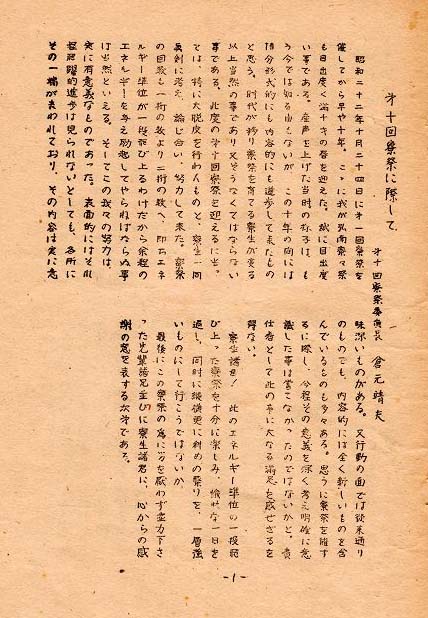 才十回寮祭に際して
才十回寮祭委員長 倉元靖夫
昭和二十二年十月二十四日に第一回寮祭を
催してから早や十年。ここに我が弘南寮々祭
も目出度く満十才の春を迎えた。誠に目出度
い事である。産声を上げた当時の様子は、も
う今では知る由もないが、この十年の向には
随分形式的にも内容的にも進歩して来たもの
と思う。時代が移り寮祭を育てる寮生が変る
以上当然の事であり又そうなくてはならない
事である。此度の才十回寮祭を迎えるに当っ
ては、特に大脱皮を行わんものと、寮生一同
真剣に考え、論じ合い、努力して来た。寮祭
の回数も一桁の数より二桁の数へ、即ちエネ
ルギー準位が一段飛び上るわけだから余程の
エネルギーを与え励起してやらねばならぬ事
は当然といえる。そしてこの我々の努力は、
実に有意義なものであった。表面的にはそれ
程飛躍的進歩は見られないとしても、各所に
その一端が表われており、その内容は実に意
味深いものがある。又行動の面では従来通り
のものでも、内容的には全く新しいものを含
んでいるものも多々ある。思うに寮祭を催す
るに際し、今程その意義を深く考え明確に意
識した事は嘗てなかったのではないかと、責
任者として此の事に大なる満足を感ぜざるを
得ない。
寮生諸君!此のエネルギー準位の一段飛
び上った寮祭を十分に楽しみ、愉快な一日を
過し、同時に縦横更に斜めの繋りを、一層強
いものにして行こうではないか。
最後にこの寮祭の為に労を厭わず尽力下さ
った先輩諸兄並びに寮生諸君に、心からの感
謝の意を表する次才である。
-1-